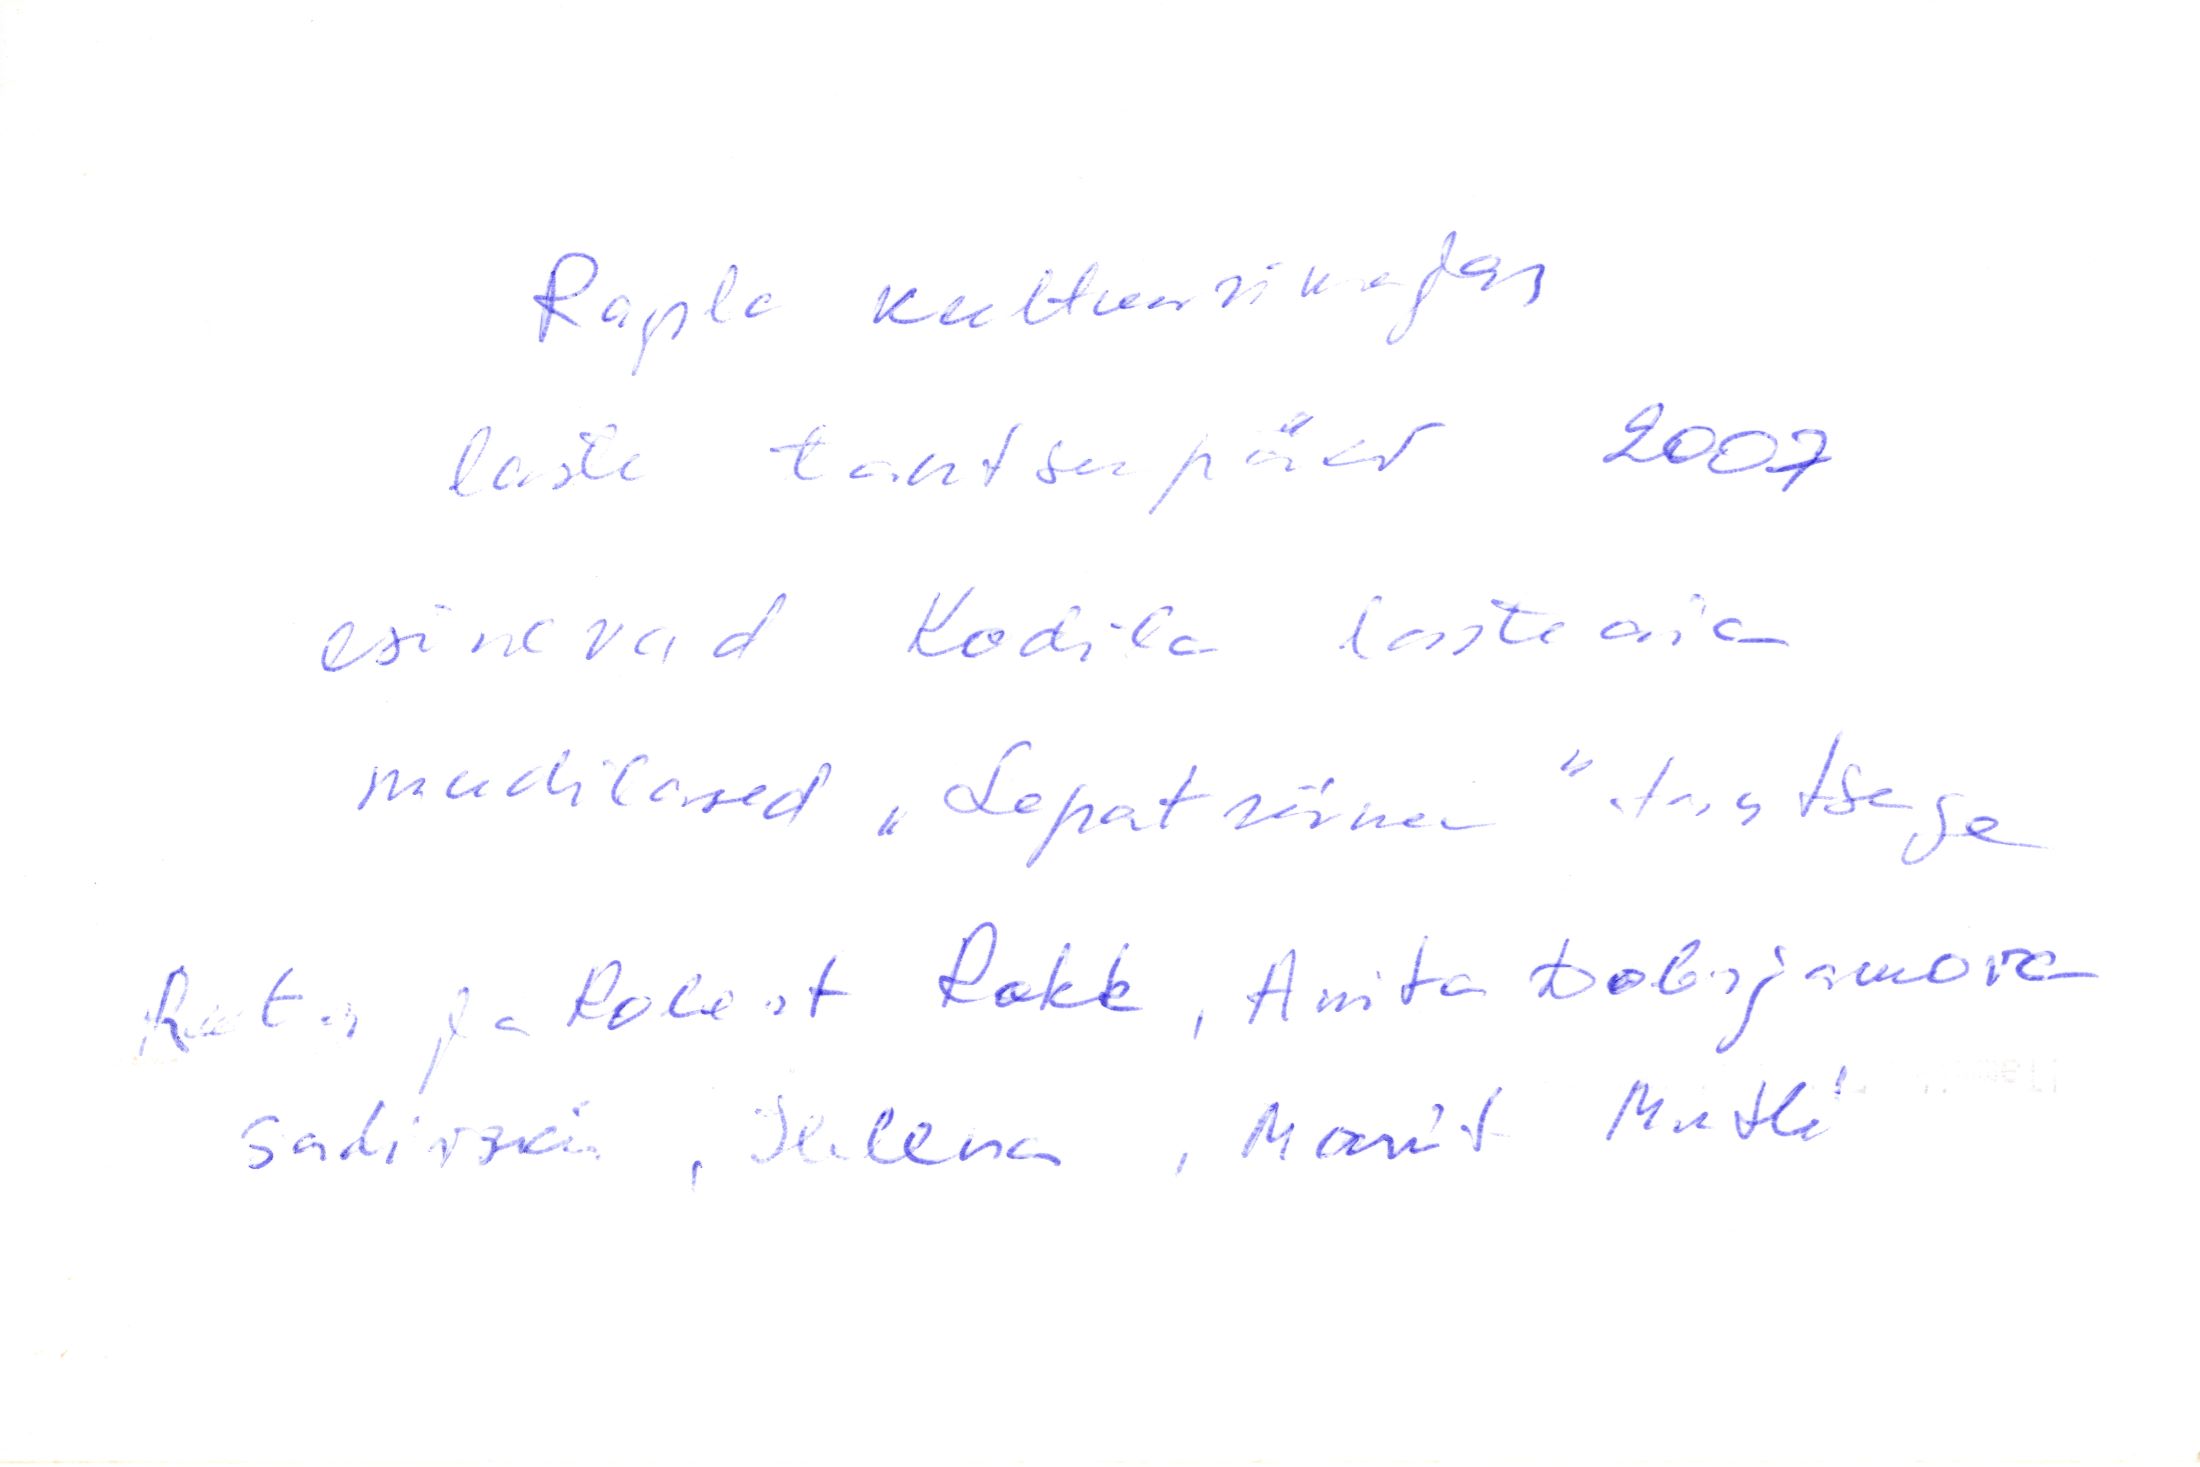 Rapla kultuurimajas
laste tantsupäev 2007
esinevad Kodila lasteaia
mudilased „Lepatriinu" tantsuga
ja Robert Rokk, Anita Dobrjamova
, Helena, Mariit Mutli